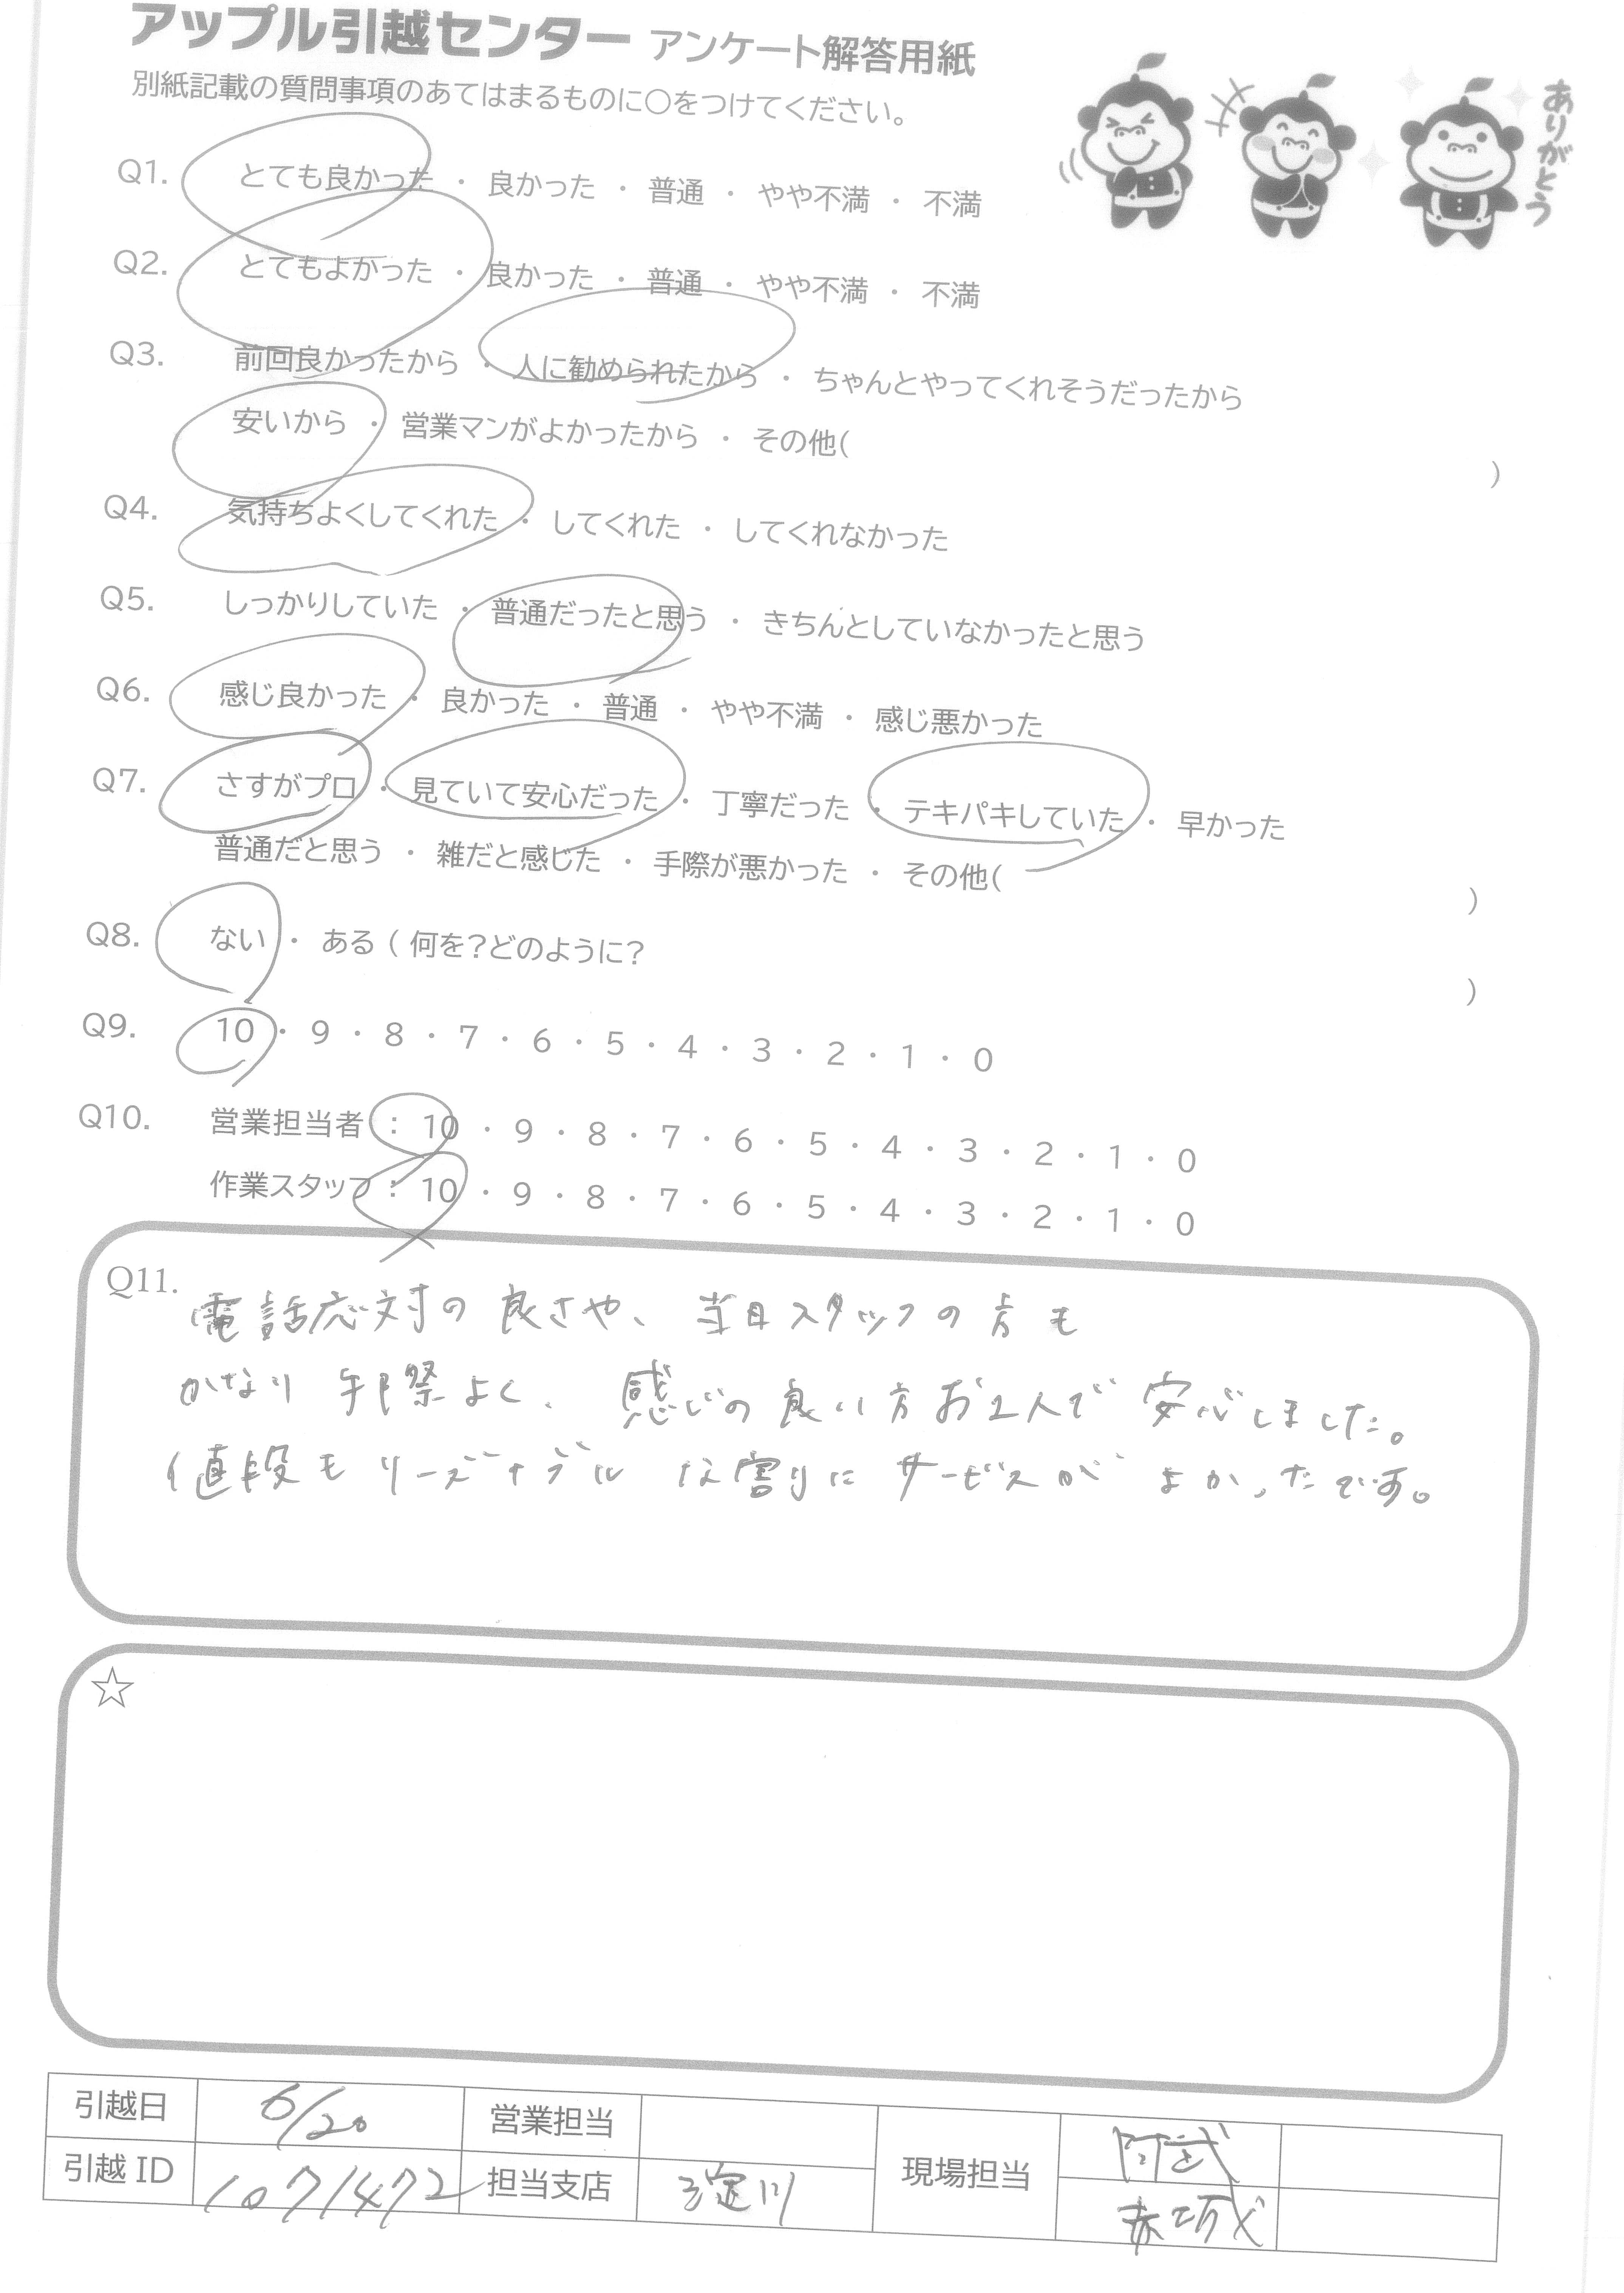 アップル引越センター アンケート解答用紙
別紙記載の質問事項のあてはまるものに○をつけてください。
ありがとう
Q1. とても良かった ・ 良かった ・ 普通 ・ やや不満 ・ 不満
Q2. とてもよかった ・ 良かった ・ 普通 ・ やや不満 ・ 不満
Q3. 前回良かったから ・ 人に勧められたから ・ ちゃんとやってくれそうだったから
安いから ・ 営業マンがよかったから ・ その他( )
Q4. 気持ちよくしてくれた ・ してくれた ・ してくれなかった
Q5. しっかりしていた ・ 普通だったと思う ・ きちんとしていなかったと思う
Q6. 感じ良かった ・ 良かった ・ 普通 ・ やや不満 ・ 感じ悪かった
Q7. さすがプロ ・ 見ていて安心だった ・ 丁寧だった ・ テキパキしていた ・ 早かった
普通だと思う ・ 雑だと感じた ・ 手際が悪かった ・ その他( )
Q8. ない ・ ある ( 何を?どのように? )
Q9. 10 ・ 9 ・ 8 ・ 7 ・ 6 ・ 5 ・ 4 ・ 3 ・ 2 ・ 1 ・ 0
Q10. 営業担当者 : 10 ・ 9 ・ 8 ・ 7 ・ 6 ・ 5 ・ 4 ・ 3 ・ 2 ・ 1 ・ 0
作業スタッフ : 10 ・ 9 ・ 8 ・ 7 ・ 6 ・ 5 ・ 4 ・ 3 ・ 2 ・ 1 ・ 0
Q11. 電話応対の良さや、当日スタッフの方も
かなり手際よく、感じの良い方お2人で安心しました。
値段もリーズナブルな割りにサービスがよかったです。
☆
引越日 6/20 営業担当
引越ID 1071472 担当支店 淀川 現場担当